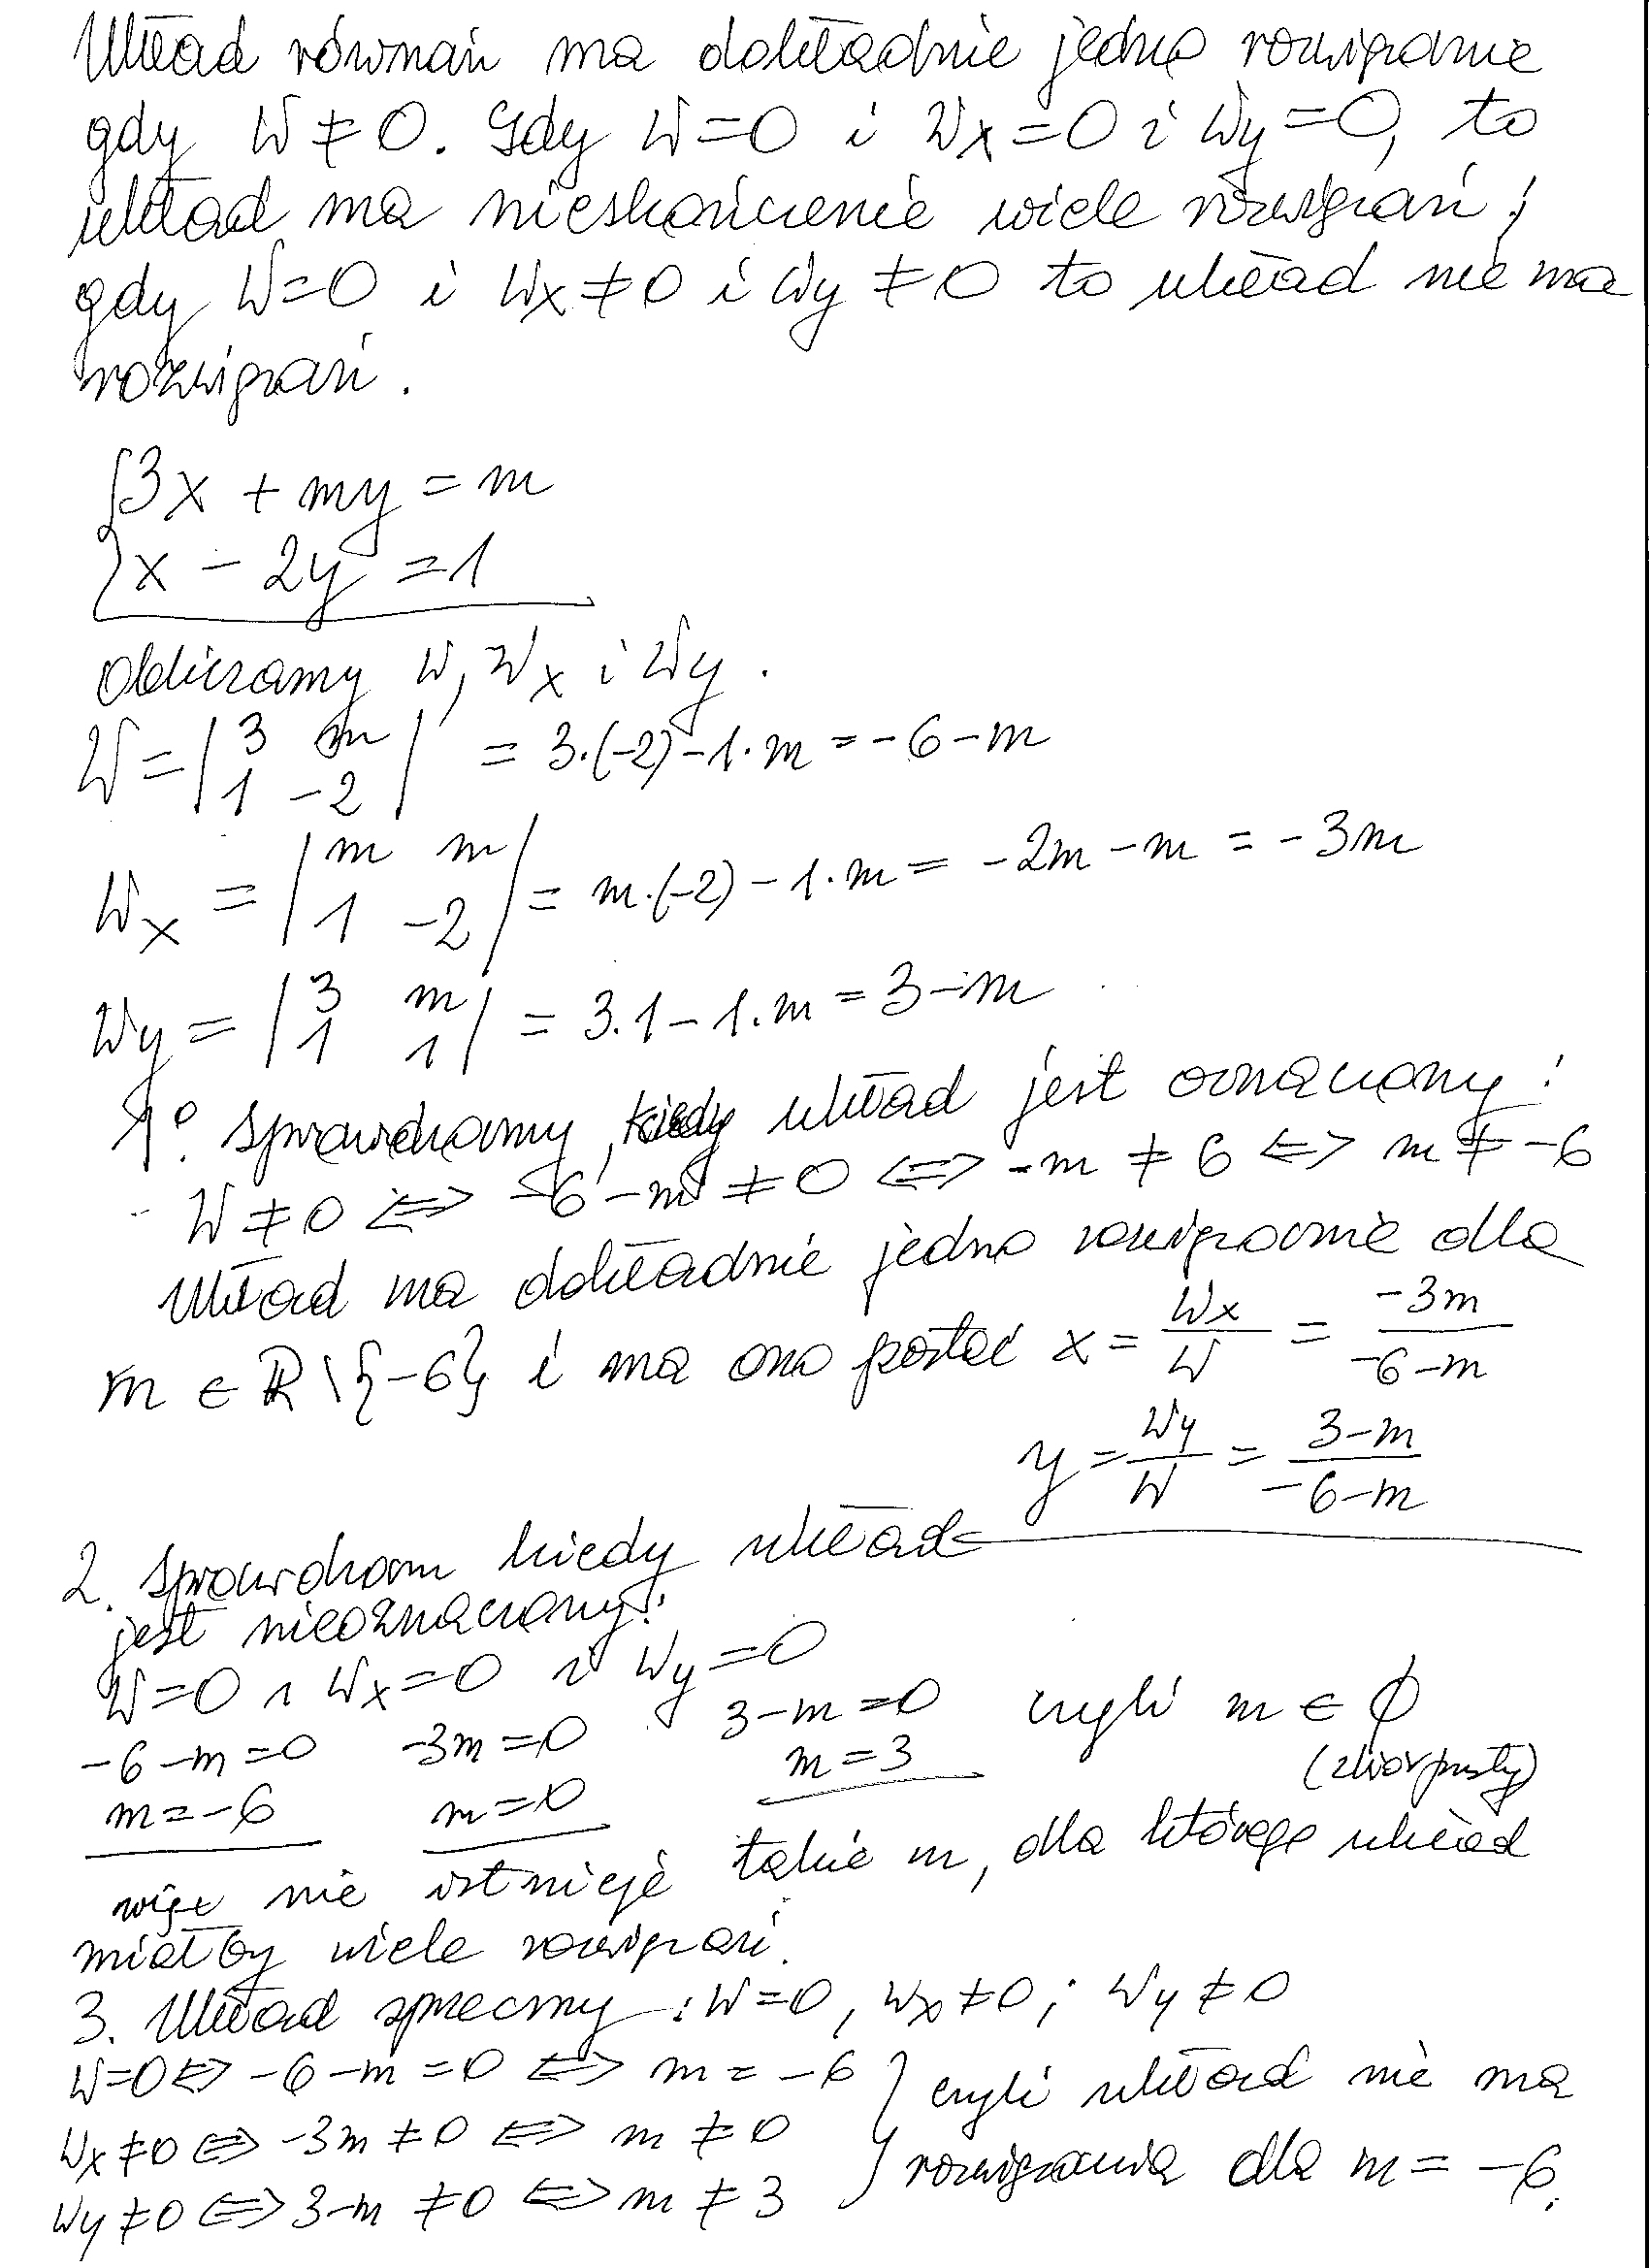 Układ równań ma dokładnie jedno rozwiązanie
gdy W ≠ 0. Gdy W=0 i Wx=0 i Wy=0, to
układ ma nieskończenie wiele rozwiązań;
gdy W=0 i Wx≠0 i Wy ≠0 to układ nie ma
rozwiązań.
{3x + my = m
{x - 2y = 1
Obliczamy W, Wx i Wy.
W = |3 m; 1 -2| = 3·(-2)-1·m = -6-m
Wx = |m m; 1 -2| = m·(-2) - 1·m = -2m-m = -3m
Wy = |3 m; 1 1| = 3·1-1·m = 3-m
1°. Sprawdzamy, kiedy układ jest oznaczony:
W≠0 <=> -6-m ≠0 <=> -m ≠ 6 <=> m ≠ -6
Układ ma dokładnie jedno rozwiązanie dla
m ∈ R\{-6} i ma ono postać x = Wx/W = -3m/-6-m
y = Wy/W = 3-m/-6-m
2. Sprawdzam kiedy układ
jest nieoznaczony:
W=0 i Wx=0 i Wy=0
-6-m=0 -3m=0 3-m=0 czyli m ∈ ϕ
m=-6 m=0 m=3 (zbiór pusty)
więc nie istnieje takie m, dla którego układ
miałby wiele rozwiązań.
3. Układ sprzeczny: W=0, Wx≠0; Wy≠0
W=0 <=> -6-m=0 <=> m = -6 } czyli układ nie ma
Wx≠0 <=> -3m ≠0 <=> m ≠ 0
rozwiązania dla m = -6.
Wy≠0 <=> 3-m ≠0 <=> m ≠ 3